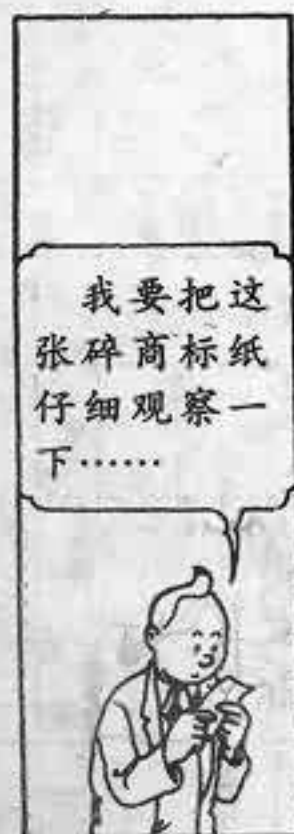 我要把这
张碎商标纸
仔细观察一
下……